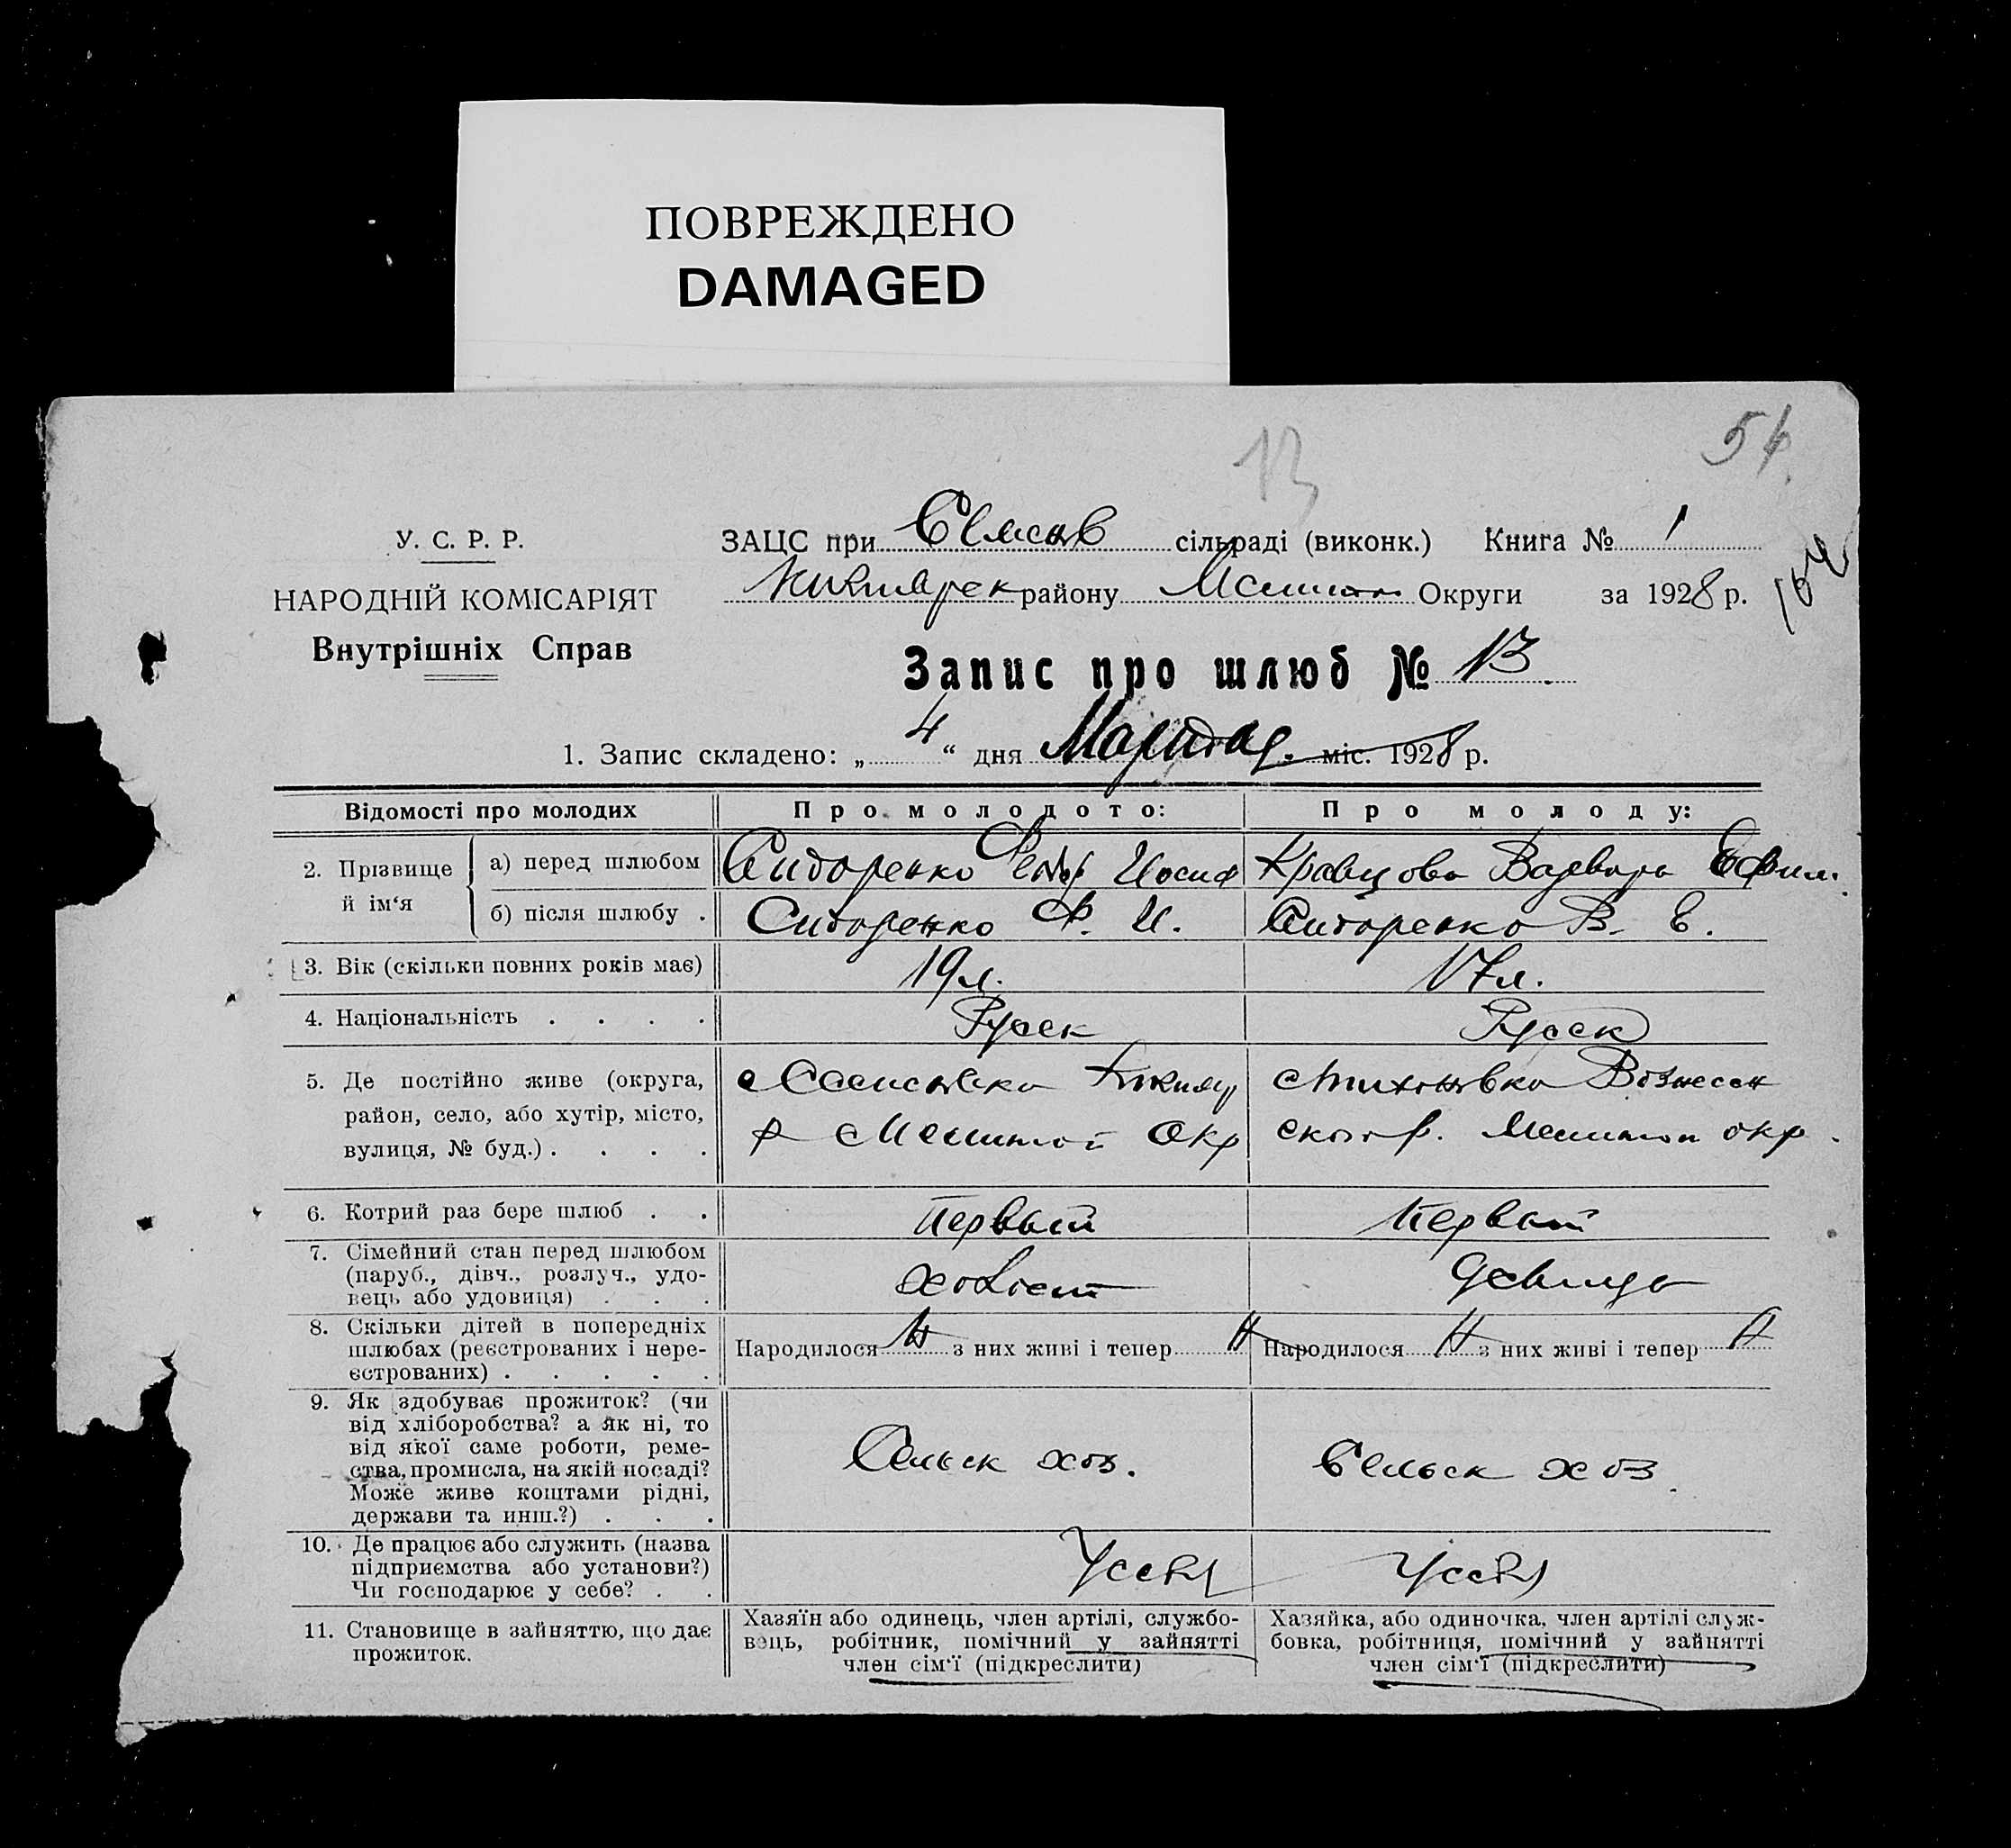 ПОВРЕЖДЕНО
DAMAGED
54
13
У. С. Р. Р.
НАРОДНІЙ КОМІСАРІЯТ
Внутрішніх Справ
ЗАЦС при сільраді (виконк.) Книга № 1
району Округи за 1928 р.
Запис про шлюб № 13.
1. Запис складено: „ 4 “ дня Марта міс. 1928 р.
Відомості про молодих
Про молодого:
Про молоду:
2. Прізвище й ім‘я
а) перед шлюбом
Сидоренко Федор Иосиф
Кравцова Варвара Ефим.
б) після шлюбу .
Сидоренко Ф. И.
Сидоренко В. Е.
3. Вік (скільки повних років має)
19 л.
17 л.
4. Національність . . . .
Русск
Русск
5. Де постійно живе (округа,
район, село, або хутір, місто,
вулиця, № буд.) . . . .
р Мелитоп Окр
Вознесен
ског р. Мелитоп окр.
6. Котрий раз бере шлюб . .
Первый
Первый
7. Сімейний стан перед шлюбом
(паруб., дівч., розлуч., удо-
вець або удовиця) . . .
Холост
Девица
8. Скільки дітей в попередніх
шлюбах (реєстрованих і нере-
єстрованих) . . . . .
Народилося Н з них живі і тепер Н
Народилося Н з них живі і тепер Н
9. Як здобуває прожиток? (чи
від хліборобства? а як ні, то
від якої саме роботи, реме-
ства, промисла, на якій посаді?
Може живе коштами рідні,
держави та инш.?) . . .
Сельск хоз.
Сельск хоз.
10. Де працює або служить (назва
підприємства або установи?)
Чи господарює у себе? . .
У себя
У себя
11. Становище в зайняттю, що дає
прожиток.
Хазяїн або одинець, член артілі, службо-
вець, робітник, помічний у зайнятті
член сім‘ї (підкреслити)
Хазяйка, або одиночка, член артілі служ-
бовка, робітниця, помічний у зайнятті
член сім‘ї (підкреслити)